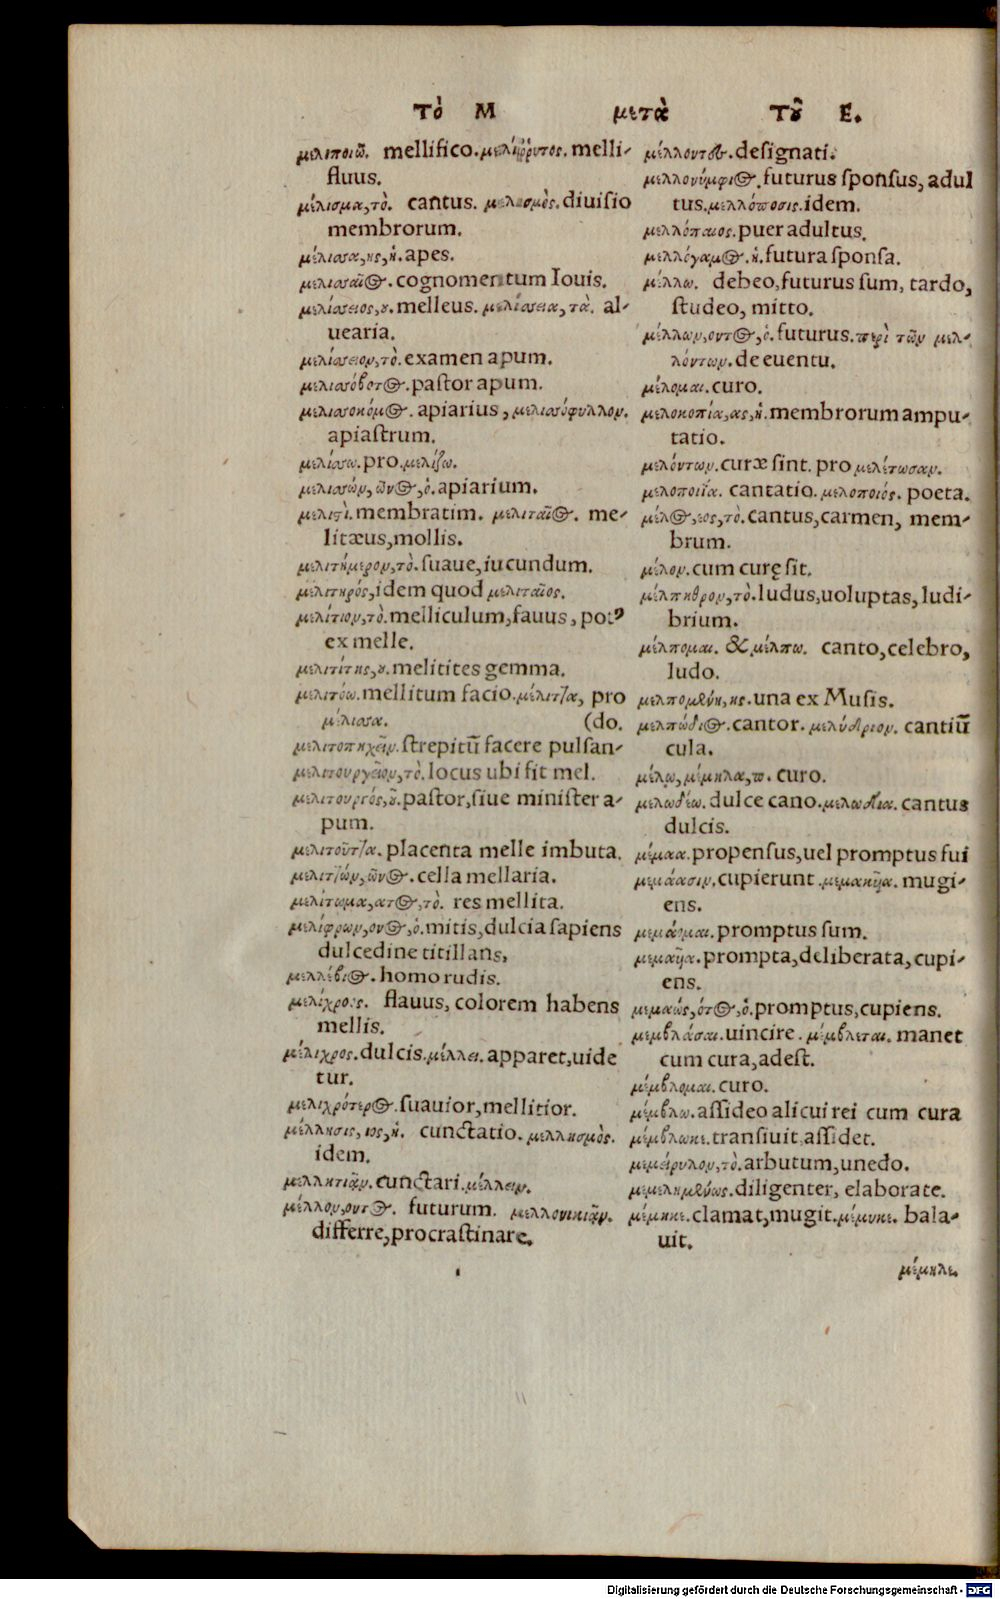 Τὸ Μ μετὰ Τοῦ Ε.
μελιποιῶ. mellifico. μελίῤῥυτος. melli-
fluus.
μέλισμα, τὸ. cantus. μελισμὸς. diuisio
membrorum.
μέλισσα, ης, ἡ. apes.
μελισσαῖος. cognomentum Iouis.
μελίσσειος, ου. melleus. μελίσσεια, τὰ. al-
uearia.
μελίσσειον, τὸ. examen apum.
μελισσόβοτος. pastor apum.
μελισσοκόμος. apiarius, μελισσόφυλλον.
apiastrum.
μελίσσω. pro. μελίζω.
μελισσὼν, ῶνος, ὁ. apiarium.
μελιστὶ. membratim. μελιταῖος. me-
litæus, mollis.
μελιτήμερον, τὸ. suaue, iucundum.
μελιτηρός, idem quod μελιταῖος.
μελίτιον, τὸ. melliculum, fauus, potꝰ
ex melle.
μελιτίτης, ου. melitites gemma.
μελιτόω. mellitum facio. μέλιττα, pro
μέλισσα. (do.
μελιτοπηχεῖν. strepitū facere pulsan-
μελιτουργεῖον, τὸ. locus ubi fit mel.
μελιτουργός, οῦ. pastor, siue minister a-
pum.
μελιτοῦττα. placenta melle imbuta.
μελιττὼν, ῶνος. cella mellaria.
μελίτωμα, ατος, τὸ. res mellita.
μελίφρων, ονος, ὁ. mitis, dulcia sapiens
dulcedine titillans,
μελλέβιος. homo rudis.
μελίχροος. flauus, colorem habens
mellis.
μέλιχρος. dulcis. μέλλει. apparet, uide
tur.
μελιχρότερος. suauior, mellitior.
μέλλησις, ιος, ἡ. cunctatio. μελλησμὸς.
idem.
μελλητιᾷν. cunctari. μέλλειν.
μέλλον, οντος. futurum. μελλονικιᾷν.
differre, procrastinare.
μέλλοντες. designati.
μελλονύμφιος. futurus sponsus, adul
tus. μελλόποσις. idem.
μελλόπαιος. puer adultus.
μελλόγαμος. ἡ. futura sponsa.
μέλλω. debeo, futurus sum, tardo,
studeo, mitto.
μέλλων, οντος, ὁ. futurus. περὶ τῶν μελ-
λόντων. de euentu.
μέλομαι. curo.
μελοκοπία, ας, ἡ. membrorum ampu-
tatio.
μελόντων. curæ sint. pro μελέτωσαν.
μελοποιΐα. cantatio. μελοποιός. poeta.
μέλος, εος, τὸ. cantus, carmen, mem-
brum.
μέλον. cum curę sit.
μέλπηθρον, τὸ. ludus, uoluptas, ludi-
brium.
μέλπομαι. & μέλπω. canto, celebro,
ludo.
μελπομένη, ης. una ex Musis.
μελπῴδιος. cantor. μελύδριον. cantiū
cula.
μέλω, μέμηλα, π. curo.
μελωδέω. dulce cano. μελωδία. cantus
dulcis.
μέμαα. propensus, uel promptus fui
μεμάασιν. cupierunt. μεμακυῖα. mugi-
ens.
promptus sum.
μεμαυῖα. prompta, deliberata, cupi-
ens.
μεμαὼς, ότος, ὁ. promptus, cupiens.
μεμβλάσαι. uincire. μέμβλεται. manet
cum cura, adest.
μέμβλομαι. curo.
μέμβλω. assideo alicui rei cum cura
μέμβλωκε. transiuit, assidet.
μεμαίρυλον, τὸ. arbutum, unedo.
μεμελημένως. diligenter, elaborate.
μέμηκε. clamat, mugit. μέμυκε. bala-
uit.
μέμηλε.
Digitalisierung gefördert durch die Deutsche Forschungsgemeinschaft - DFG